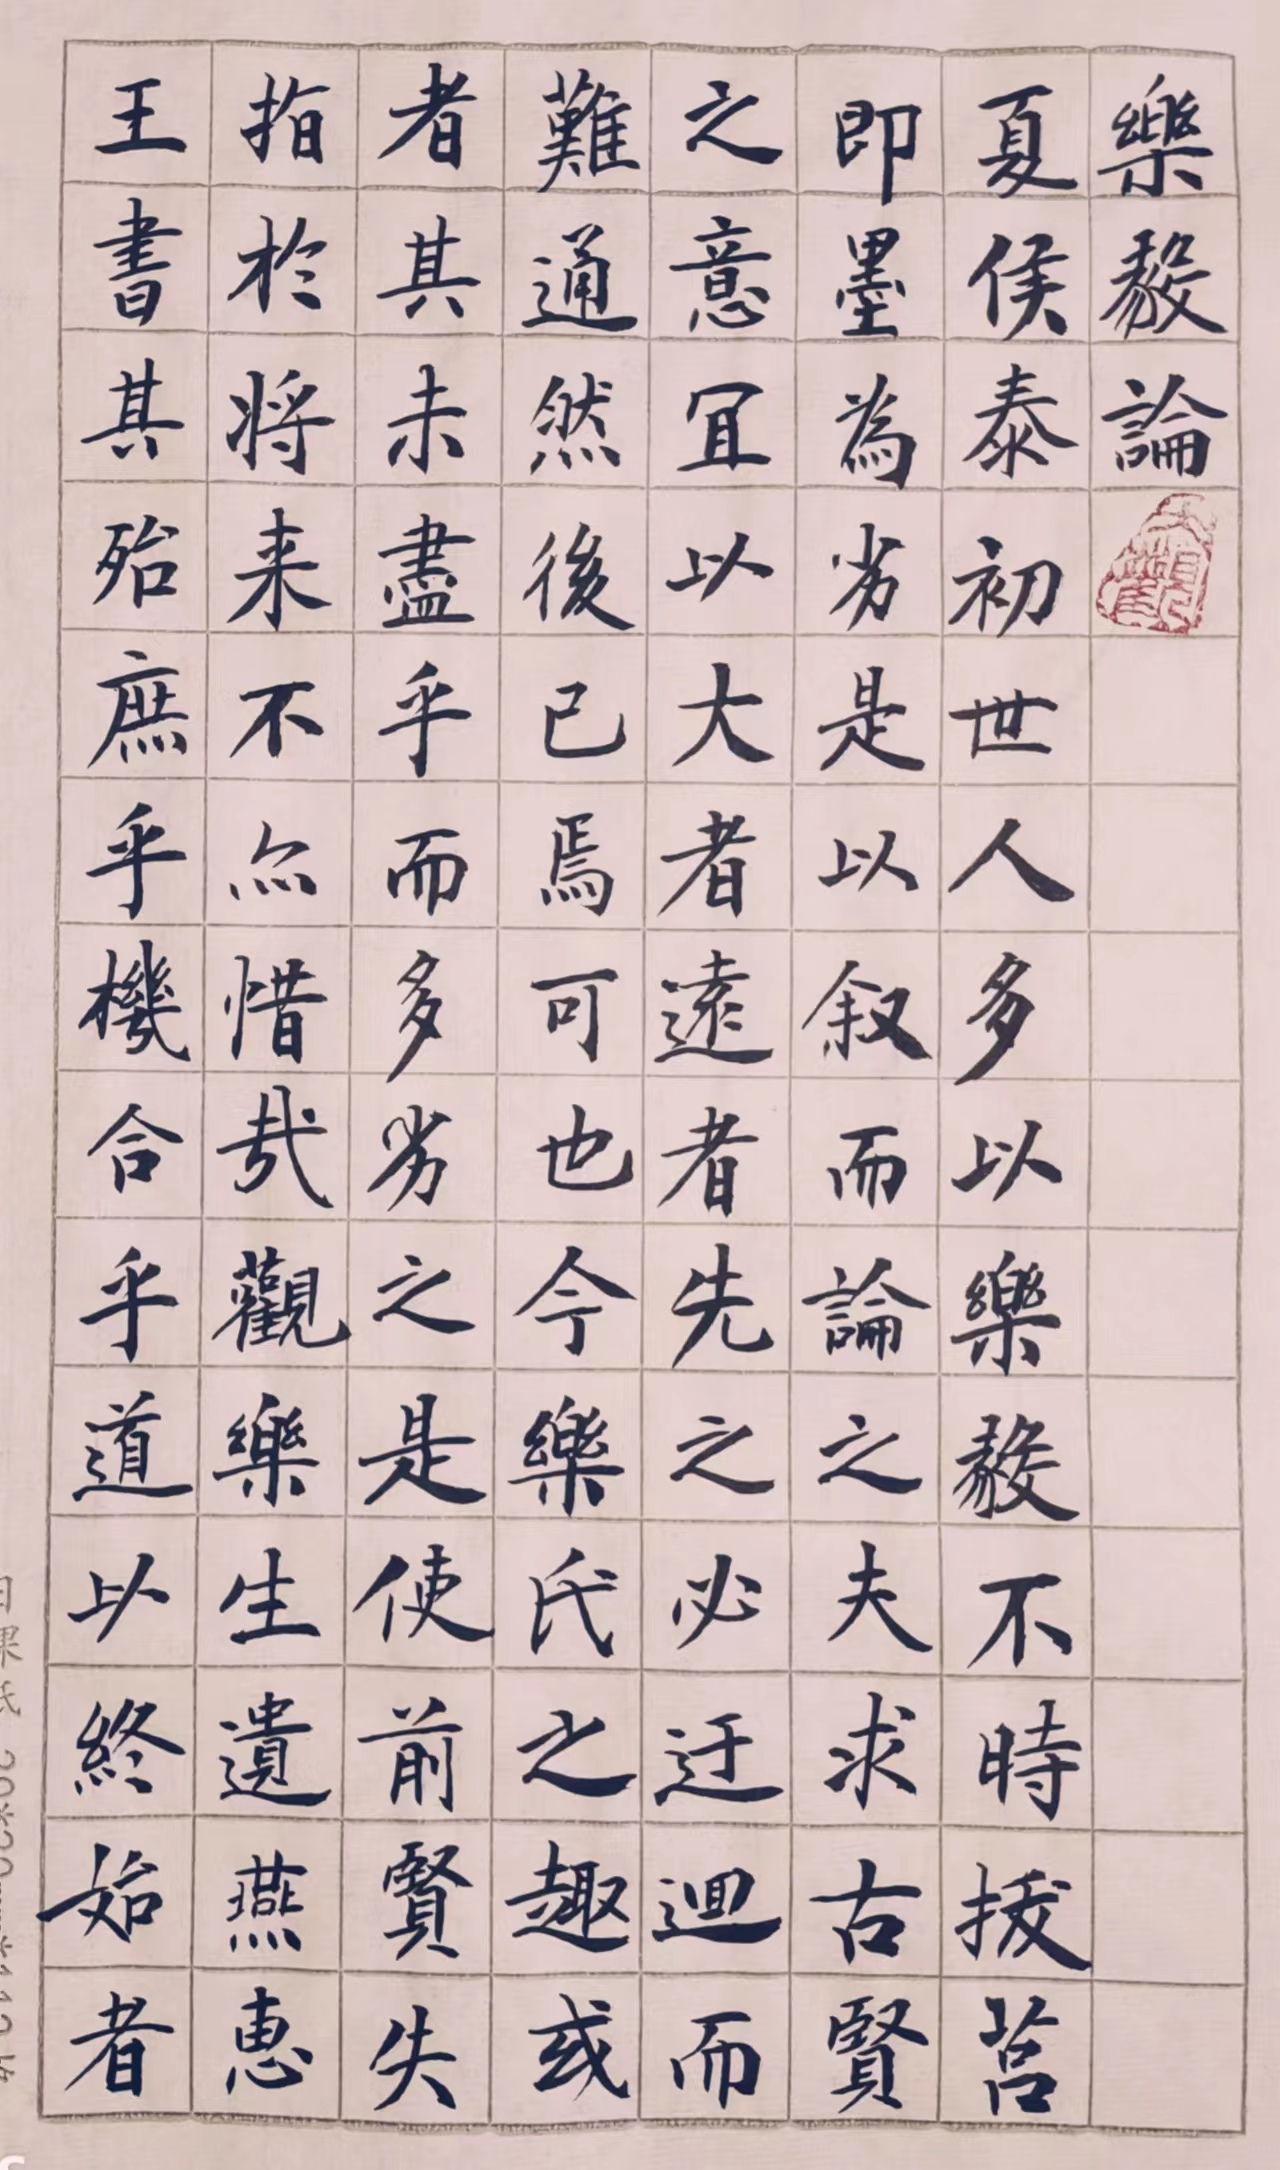 樂毅論
夏侯泰初世人多以樂毅不時拔莒
即墨為劣是以叙而論之夫求古賢
之意宜以大者遠者先之必迂迴而
難通然後已焉可也今樂氏之趣或
者其未盡乎而多劣之是使前賢失
指於將来不亦惜哉觀樂生遺燕惠
王書其殆庶乎機合乎道以終始者